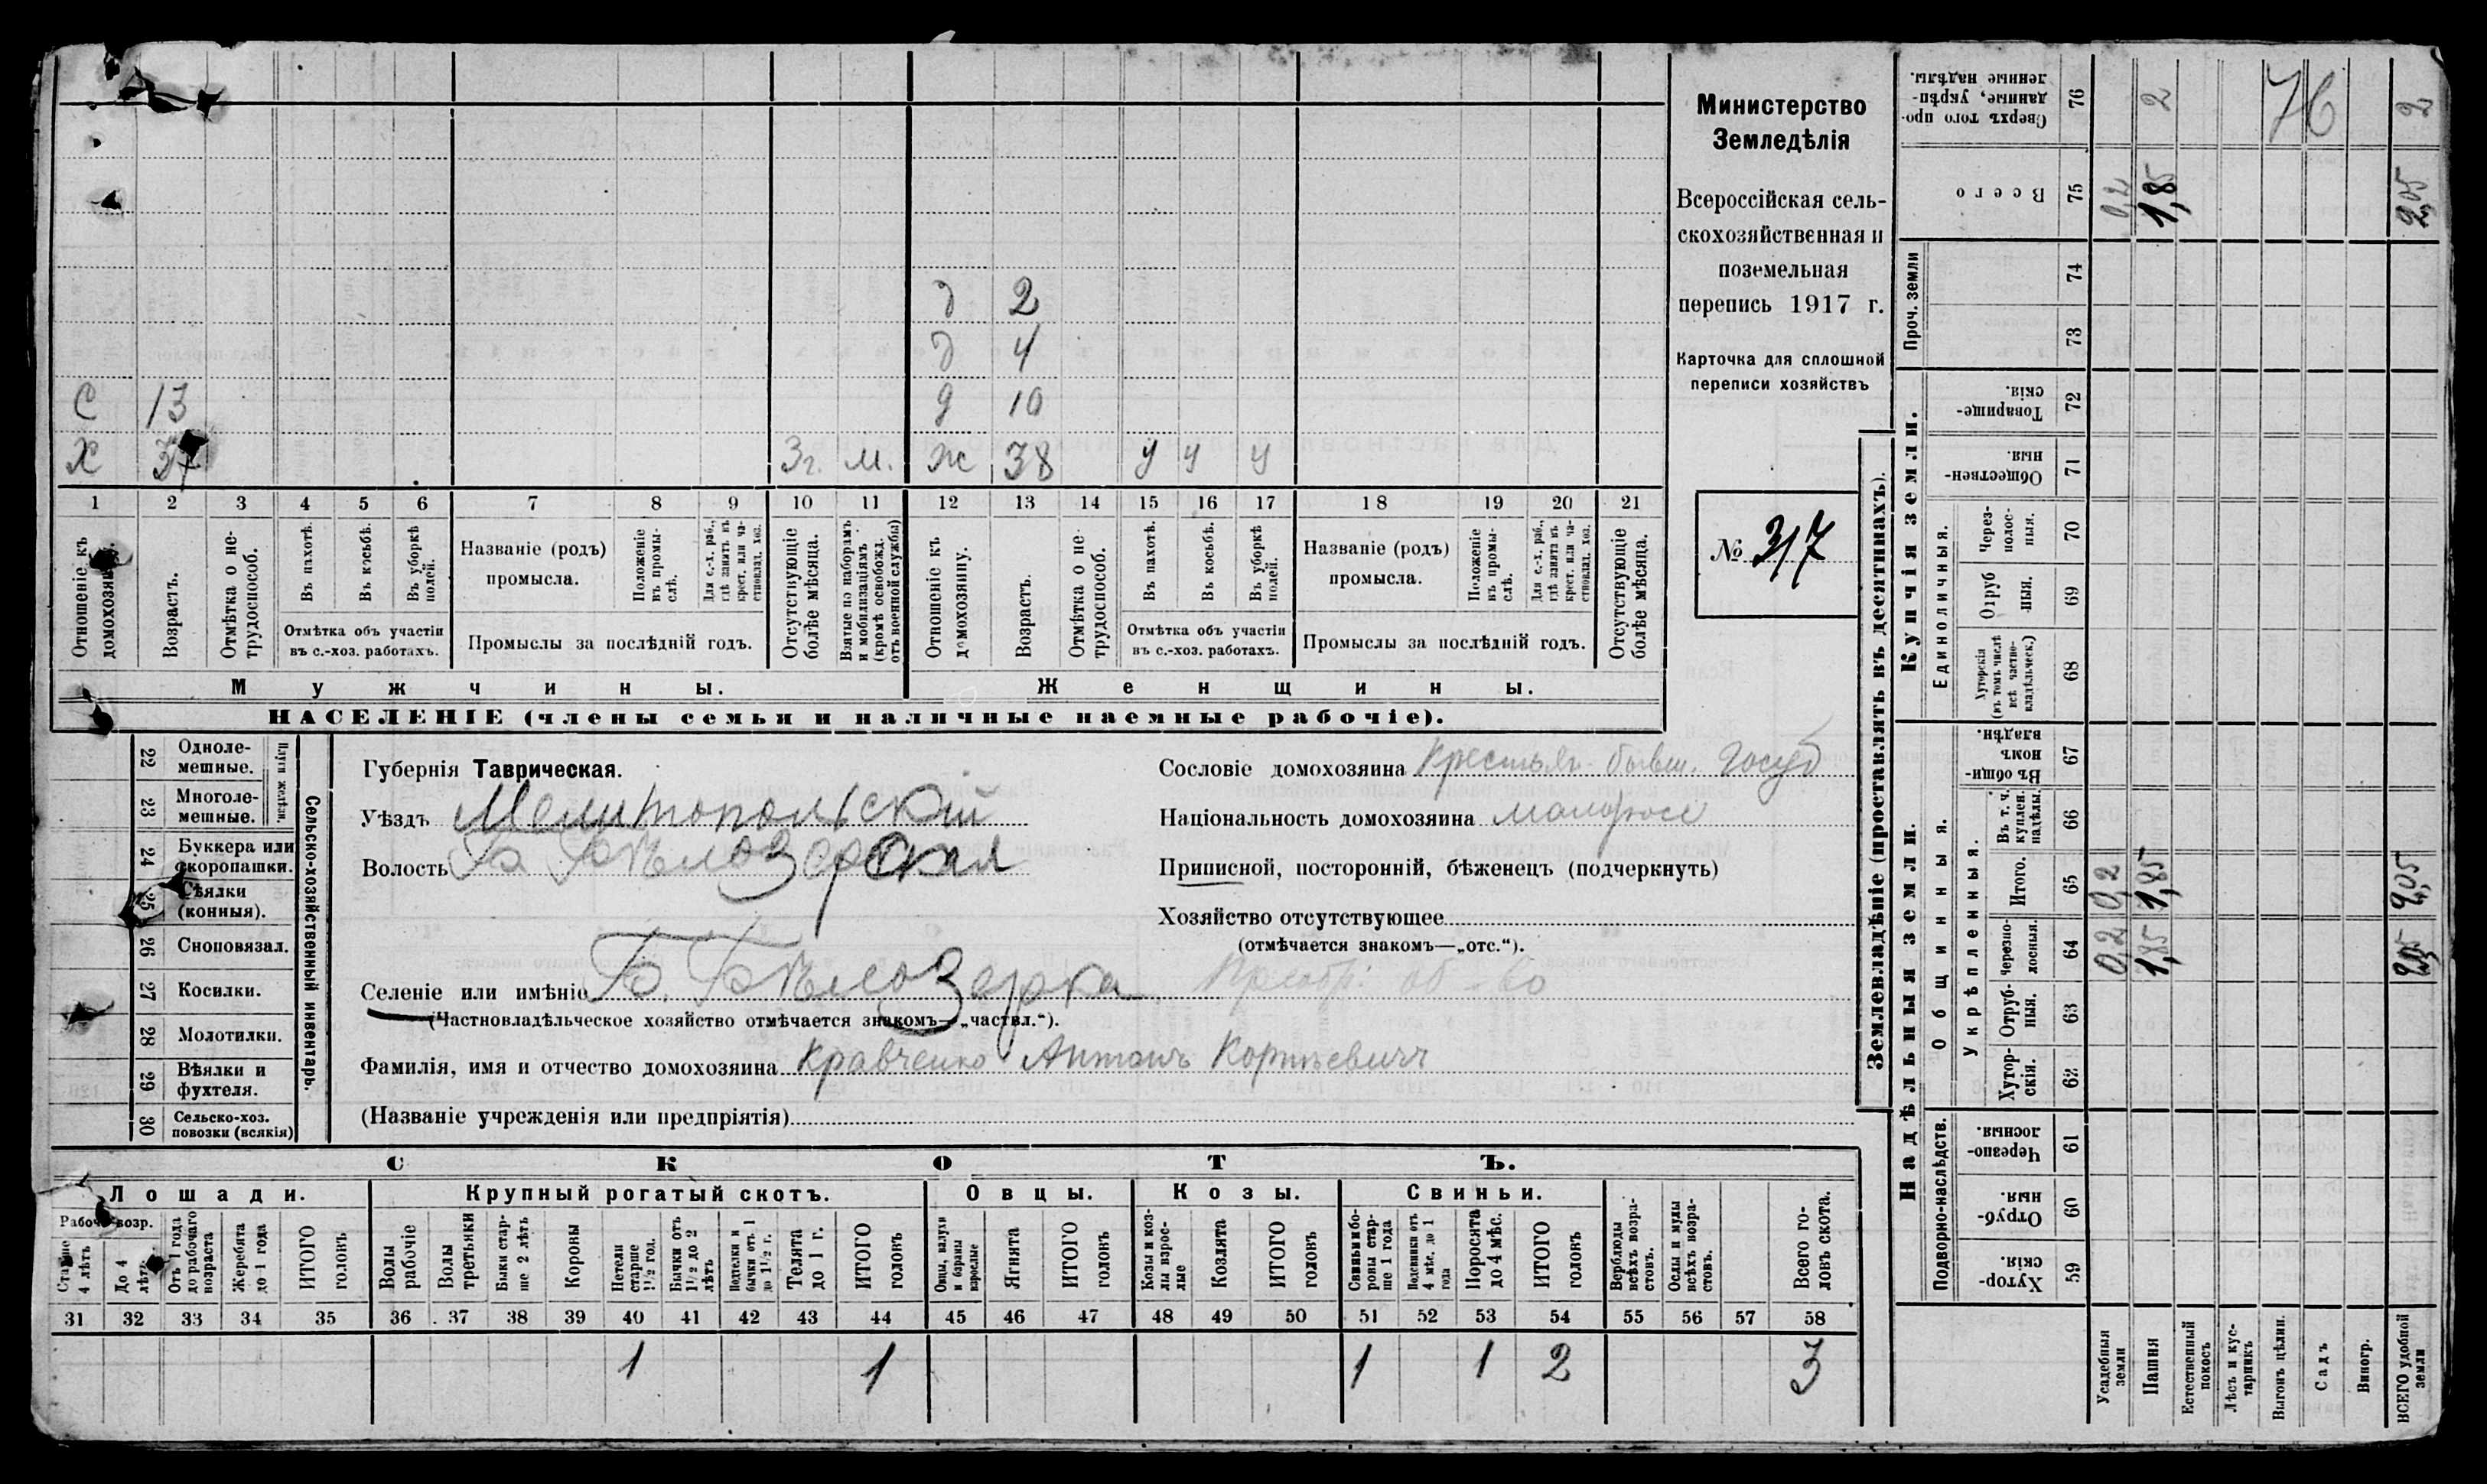 С 13
Х 37 3г. м.
д 2
д 4
д 10
ж 38 у у у
1 2 3 4 5 6 7 8 9 10 11 12 13 14 15 16 17 18 19 20 21
Отношеніе къ домохозяину.
Возрастъ.
Отмѣтка о нетрудоспособ.
Въ пахотѣ.
Въ косьбѣ.
Въ уборкѣ полей.
Отмѣтка объ участіи
въ с.-хоз. работахъ.
Названіе (родъ)
промысла.
Положеніе въ промыслѣ.
Для с.-х. раб., гдѣ занить въ крест. или частновлад. хоз.
Промыслы за послѣдній годъ.
Отсутствующіе болѣе мѣсяца.
Взятые по наборамъ и мобилизаціямъ (кромѣ освобожд. отъ военной службы)
Отношеніе къ домохозяину.
Возрастъ.
Отмѣтка о нетрудоспособ.
Въ пахотѣ.
Въ косьбѣ.
Въ уборкѣ полей.
Отмѣтка объ участіи
въ с.-хоз. работахъ.
Названіе (родъ)
промысла.
Положеніе въ промыслѣ.
Для с.-х. раб., гдѣ занята въ крест. или частновлад. хоз.
Промыслы за послѣдній годъ.
Отсутствующіе болѣе мѣсяца.
Мужчины. Женщины.
НАСЕЛЕНІЕ (члены семьи и наличные наемные рабочіе).
Министерство
Земледѣлія
Всероссійская сель-
скохозяйственная и
поземельная
перепись 1917 г.
Карточка для сплошной
переписи хозяйствъ
№ 317
Сельско-хозяйственный инвентарь.
Плуги желѣзн.
22 Одноле-
мешные.
23 Многоле-
мешные.
24 Буккера или
скоропашки.
25 Сѣялки
(конныя).
26 Сноповязал.
27 Косилки.
28 Молотилки.
29 Вѣялки и
фухтеля.
30 Сельско-хоз.
повозки (всякія)
Губернія Таврическая.
Уѣздъ Мелитопольскій
Волость Б Бѣлозерская
Селеніе или имѣніе Б. Бѣлозерка
(Частновладѣльческое хозяйство отмѣчается знакомъ—„частвл.“).
Фамилія, имя и отчество домохозяина Кравченко Антонъ Корнѣевичъ
(Названіе учрежденія или предпріятія)
Сословіе домохозяина Крестьян бывш. госуд
Національность домохозяина малоросс
Приписной, посторонній, бѣженецъ (подчеркнуть)
Хозяйство отсутствующее
(отмѣчается знакомъ—„отс.“).
СКОТЪ.
Лошади. Крупный рогатый скотъ. Овцы. Козы. Свиньи.
Рабоч. возр.
Старше 4 лѣтъ
До 4 лѣтъ
Отъ 1 года до рабочаго возраста
Жеребята до 1 года
ИТОГО головъ
Волы рабочіе
Волы третьяки
Быки старше 2 лѣтъ
Коровы
Нетели старше 1½ год.
Бычки отъ 1½ до 2 лѣтъ
Подтелки и бычки отъ 1 до 1½ г.
Телята до 1 г.
ИТОГО головъ
Овцы, валухи и бараны взрослые
Ягнята
ИТОГО головъ
Козы и козлы взрослые
Козлята
ИТОГО головъ
Свиньи и боровы старше 1 года
Подсвинки отъ 4 мѣс. до 1 года
Поросята до 4 мѣс.
ИТОГО головъ
Верблюды всѣхъ возрастовъ.
Ослы и мулы всѣхъ возрастовъ.
Всего головъ скота.
31 32 33 34 35 36 37 38 39 40 41 42 43 44 45 46 47 48 49 50 51 52 53 54 55 56 57 58
1 1 1 1 2 3
Землевладѣніе (проставлять въ десятинахъ).
Надѣльныя земли.
Подворно-наслѣдств.
Хуторскія 59
Отрубныя 60
Черезполосныя. 61
Общинныя.
Укрѣпленныя.
Хуторскія. 62
Отрубныя. 63
Черезполосныя. 64
Итого. 65
Въ т. ч. куплен. надѣлы. 66
Въ общинномъ владѣн. 67
Купчія земли.
Единоличныя.
Хуторскія (въ томъ числѣ всѣ частновладѣльческ.) 68
Отрубныя. 69
Черезполосныя. 70
Общественныя. 71
Товарищескія. 72
Проч. земли
73
74
Всего 75
Сверхъ того проданные, укрѣпленные надѣлы. 76
Усадебныя земли 0,2 0,2 0,2
Пашня 1,85 1,85 1,85 2
Естественный покосъ
Лѣсъ и кустарникъ
Выгонъ цѣлин.
Садъ
Виногр.
ВСЕГО удобной земли 2,05 2,05 2,05 2
76